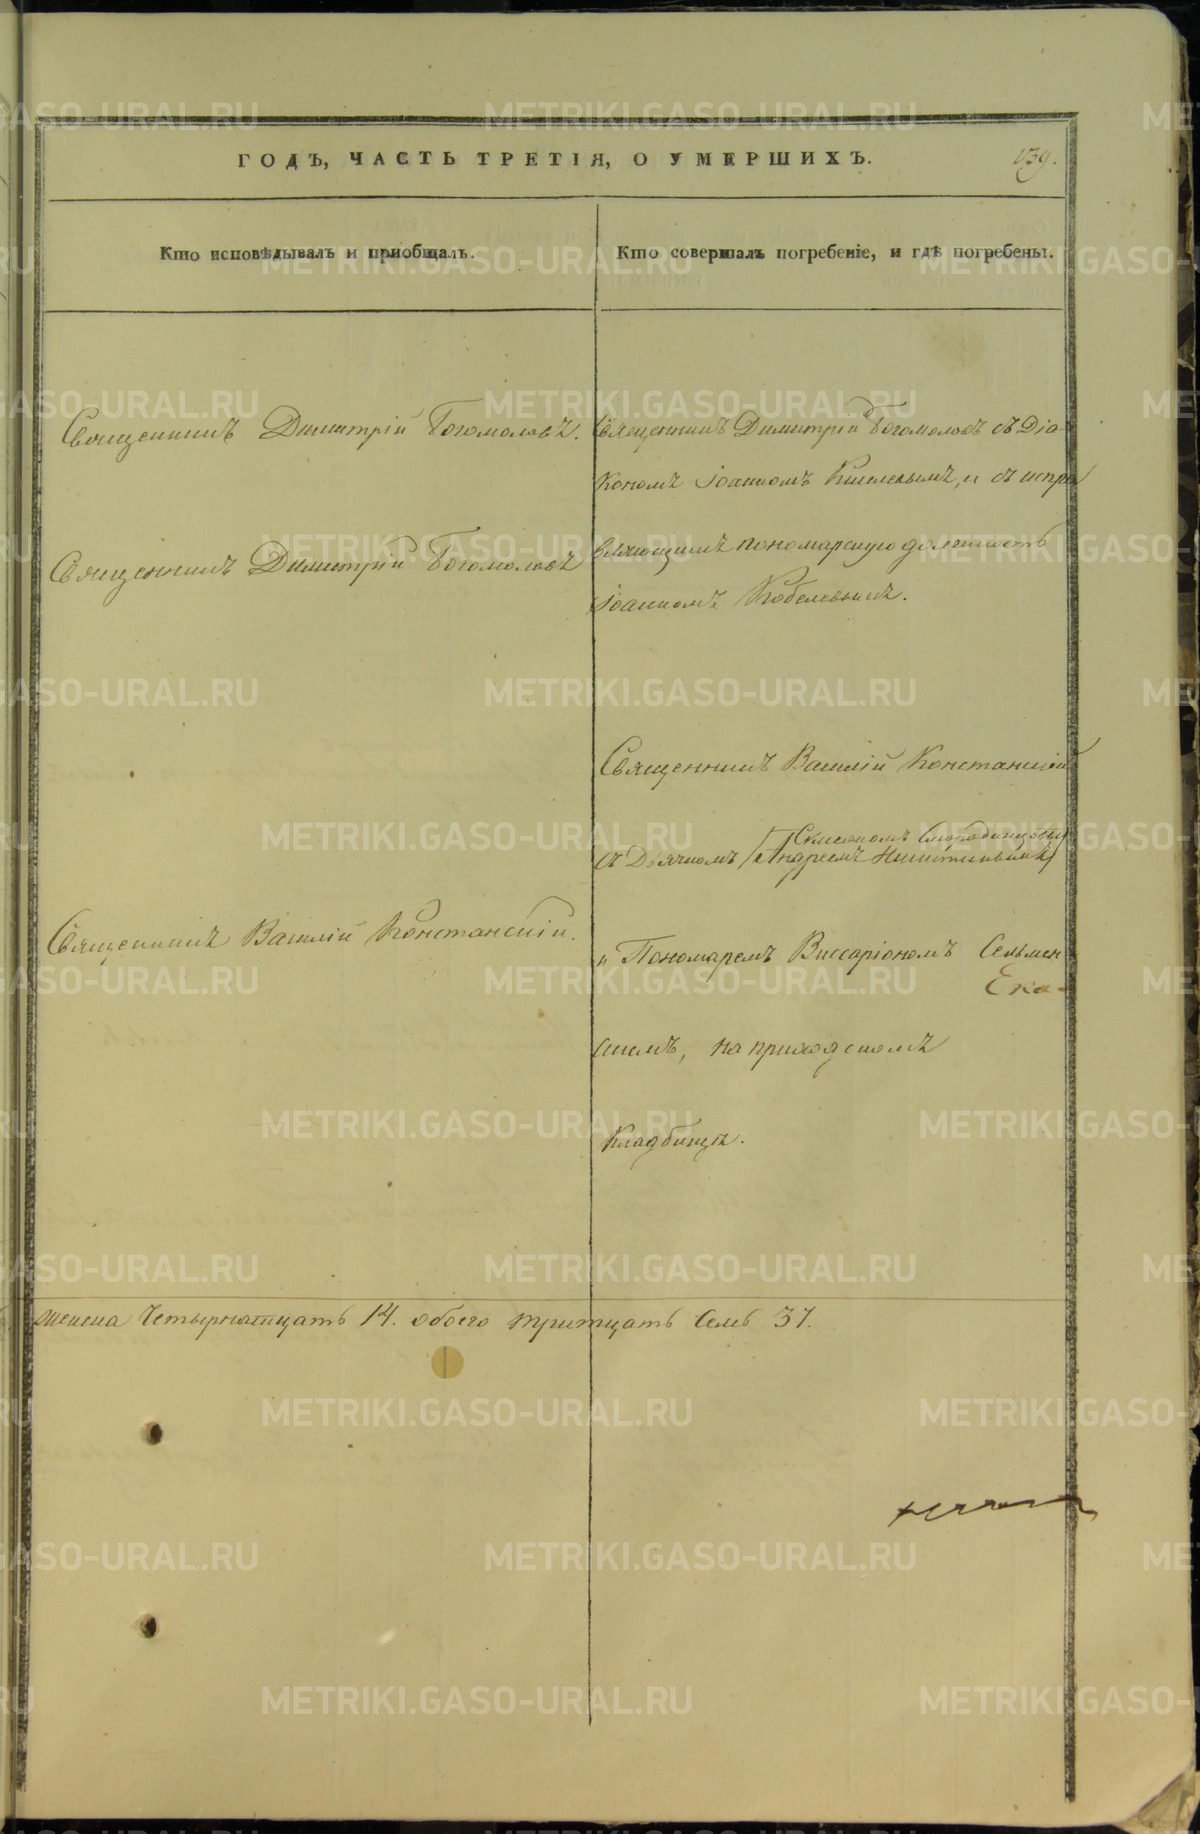 ГОДЪ, ЧАСТЬ ТРЕТІЯ, О УМЕРШИХЪ.
139.
Кто исповѣдывалъ и приобщалъ.
Кто совершалъ погребеніе, и гдѣ погребены.
Священникъ Димитрій Богомоловъ.
Священникъ Димитрій Богомоловъ
Священникъ Василій Констанскій.
Священникъ Димитрій Богомоловъ съ Діа-
кономъ Іоанномъ Киселевымъ, и съ испра
вляющимъ пономарскую должность
Іоанномъ Кобелевымъ.
Священникъ Василій Констанскій
Смородинцовы
съ Дьячкомъ Андреемъ Никитинымъ
и Пономаремъ Виссаріономъ
Ека-
скимъ, на приходскомъ
Кладбищѣ.
женска Четырнатцать 14. обоего тритцать Семь 37.
METRIKI.GASO-URAL.RU